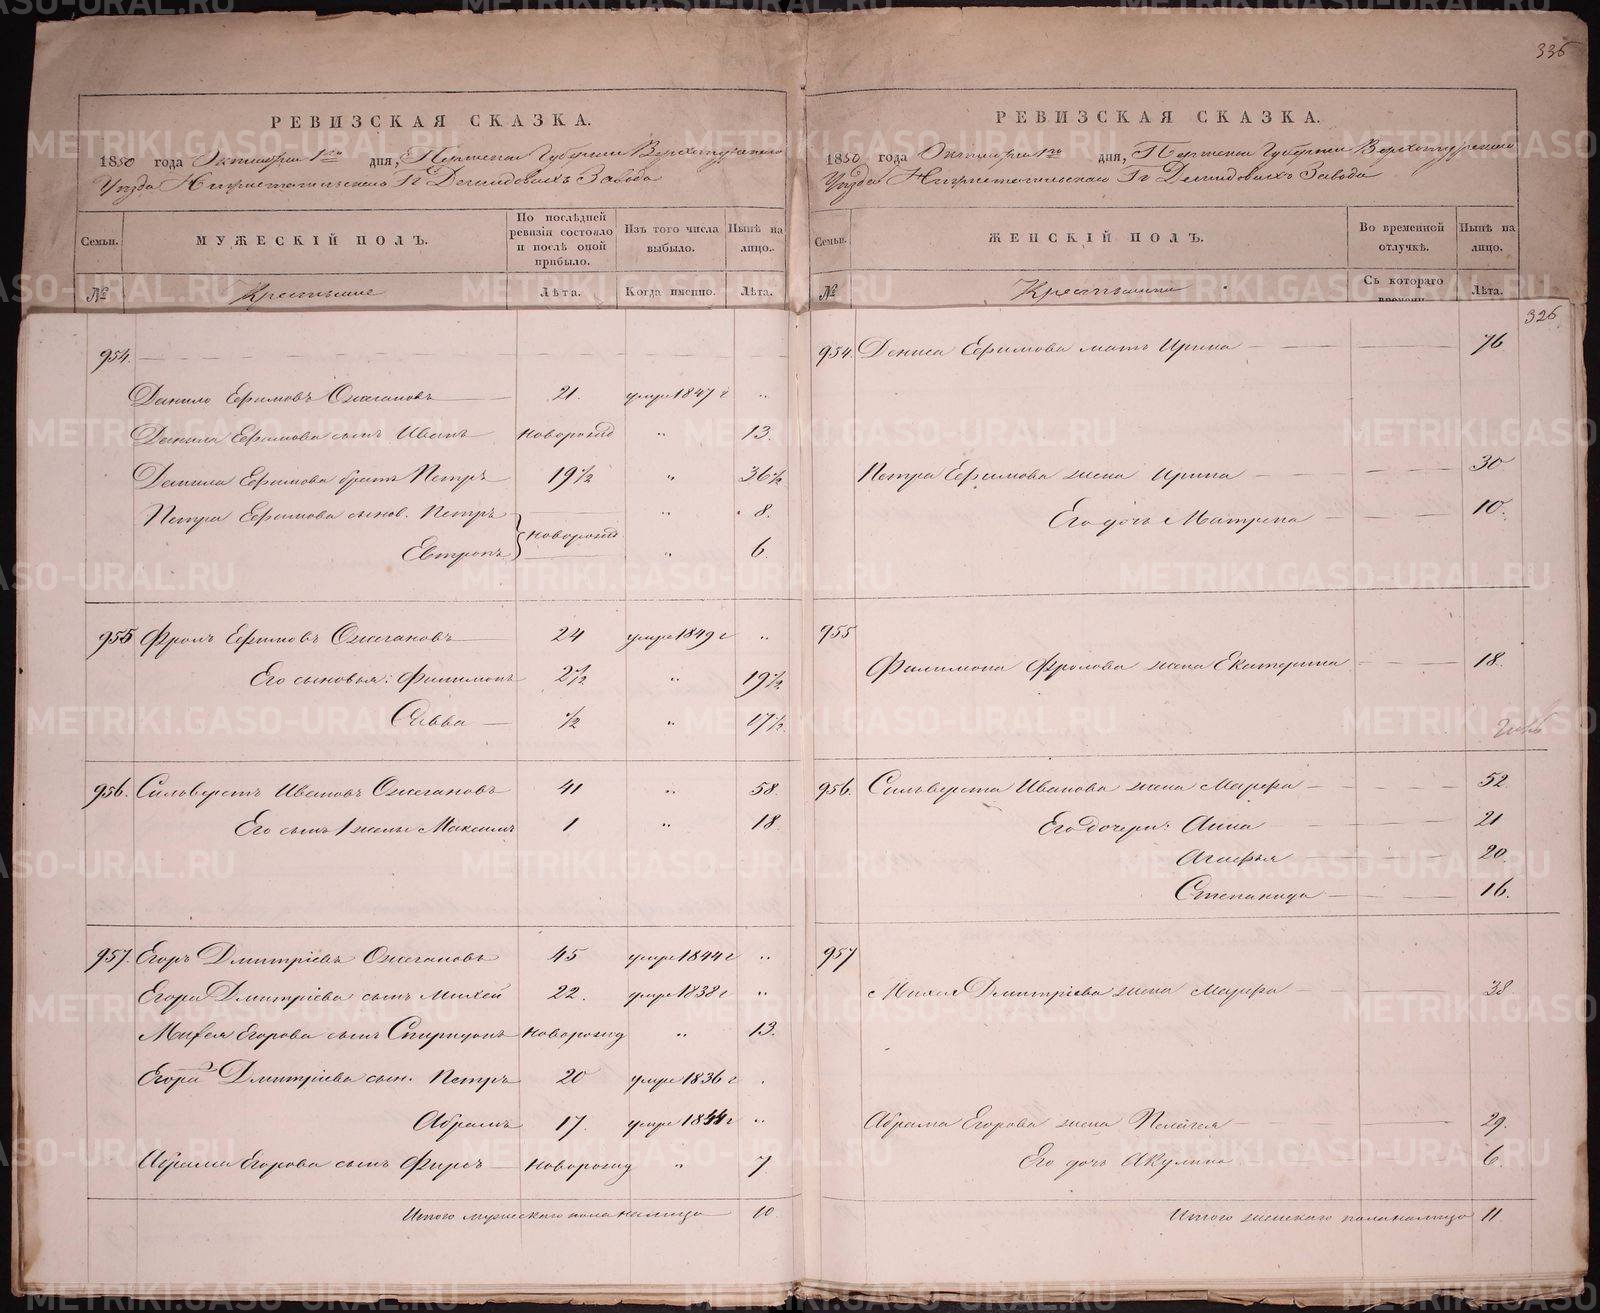 336
РЕВИЗСКАЯ СКАЗКА.
1850 года Октября 1го дня, Пермской Губернии Верхотурского
Уѣзда Нижнетагильскаго Гг Демидовыхъ Завода
Семьи.
МУЖЕСКІЙ ПОЛЪ.
По послѣдней ревизіи состояло и послѣ оной прибыло.
Изъ того числа выбыло.
Нынѣ на лицо.
№
Крестьяне
Лѣта.
Когда именно.
Лѣта.
954.
Данило Ефимовъ Ожегановъ 21. умре 1847 г „
Данила Ефимова сынъ Иванъ новорожд „ 13.
Данила Ефимова братъ Петръ 19 1/2 „ 36 1/2
Петра Ефимова сынов. Петръ новорожд „ 8.
Евтропъ „ 6.
955 Фролъ Ефимовъ Ожегановъ 24 умре 1849 г „
Его сыновья: Филимонъ 2 1/2 „ 19 1/2
Савва 1/2 „ 17 1/2
956. Сильверстъ Ивановъ Ожегановъ 41 „ 58.
Его сынъ 1 жены Максимъ 1 „ 18
957. Егоръ Дмитріевъ Ожегановъ 45 умре 1844 г „
Егора Дмитріева сынъ Михей 22. умре 1838 г „
Михея Егорова сынъ Спиридонъ новорожд „ 13.
Егора Дмитріева сын. Петръ 20 умре 1836 г „
Абрамъ 17. умре 1844 г „
Абрама Егорова сынъ Фирсъ новорожд „ 7
Итого мужескаго пола на лицо 10.
РЕВИЗСКАЯ СКАЗКА.
1850 года Октября 1го дня, Пермской Губернии Верхотурскаго
Уѣзда Нижнетагильскаго Гг Демидовыхъ Завода
Семьи.
ЖЕНСКІЙ ПОЛЪ.
Во временной отлучкѣ.
Нынѣ на лицо.
№
Крестьянки
Съ котораго времени.
Лѣта.
326
954. Дениса Ефимова мать Ирина 76
Петра Ефимова жена Ирина 30.
Его дочь Матрена 10.
955
Филимона Фролова жена Екатерина 18.
956. Сильверста Иванова жена Марфа 52
Его дочери: Анна 21
Агафья 20.
Степанида 16.
957
Михея Дмитріева жена Марфа 38
Абрама Егорова жена Пелагея 29.
Его дочь Акулина 6.
Итого женскаго пола на лицо 11.
METRIKI.GASO-URAL.RU